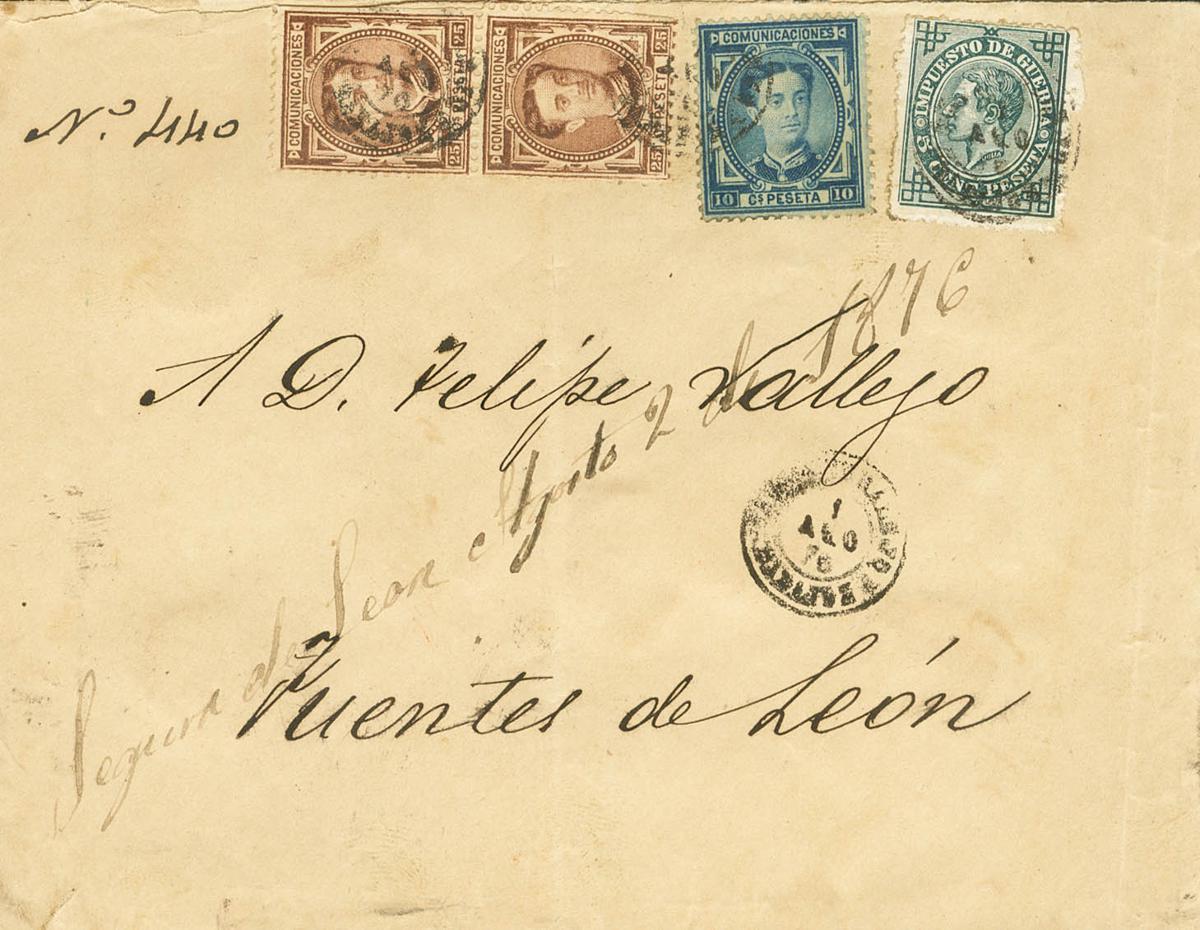 COMUNICACIONES 25 Cs PESETA 25
COMUNICACIONES 25 Cs PESETA 25
COMUNICACIONES
10 Cs PESETA 10
IMPUESTO DE GUERRA
5 CENT. PESETA
AGO
N.º 440
A D. Felipe Vallejo
1
AGO
76
Fuentes de León
Segura de Leon Agosto 2 de 1876